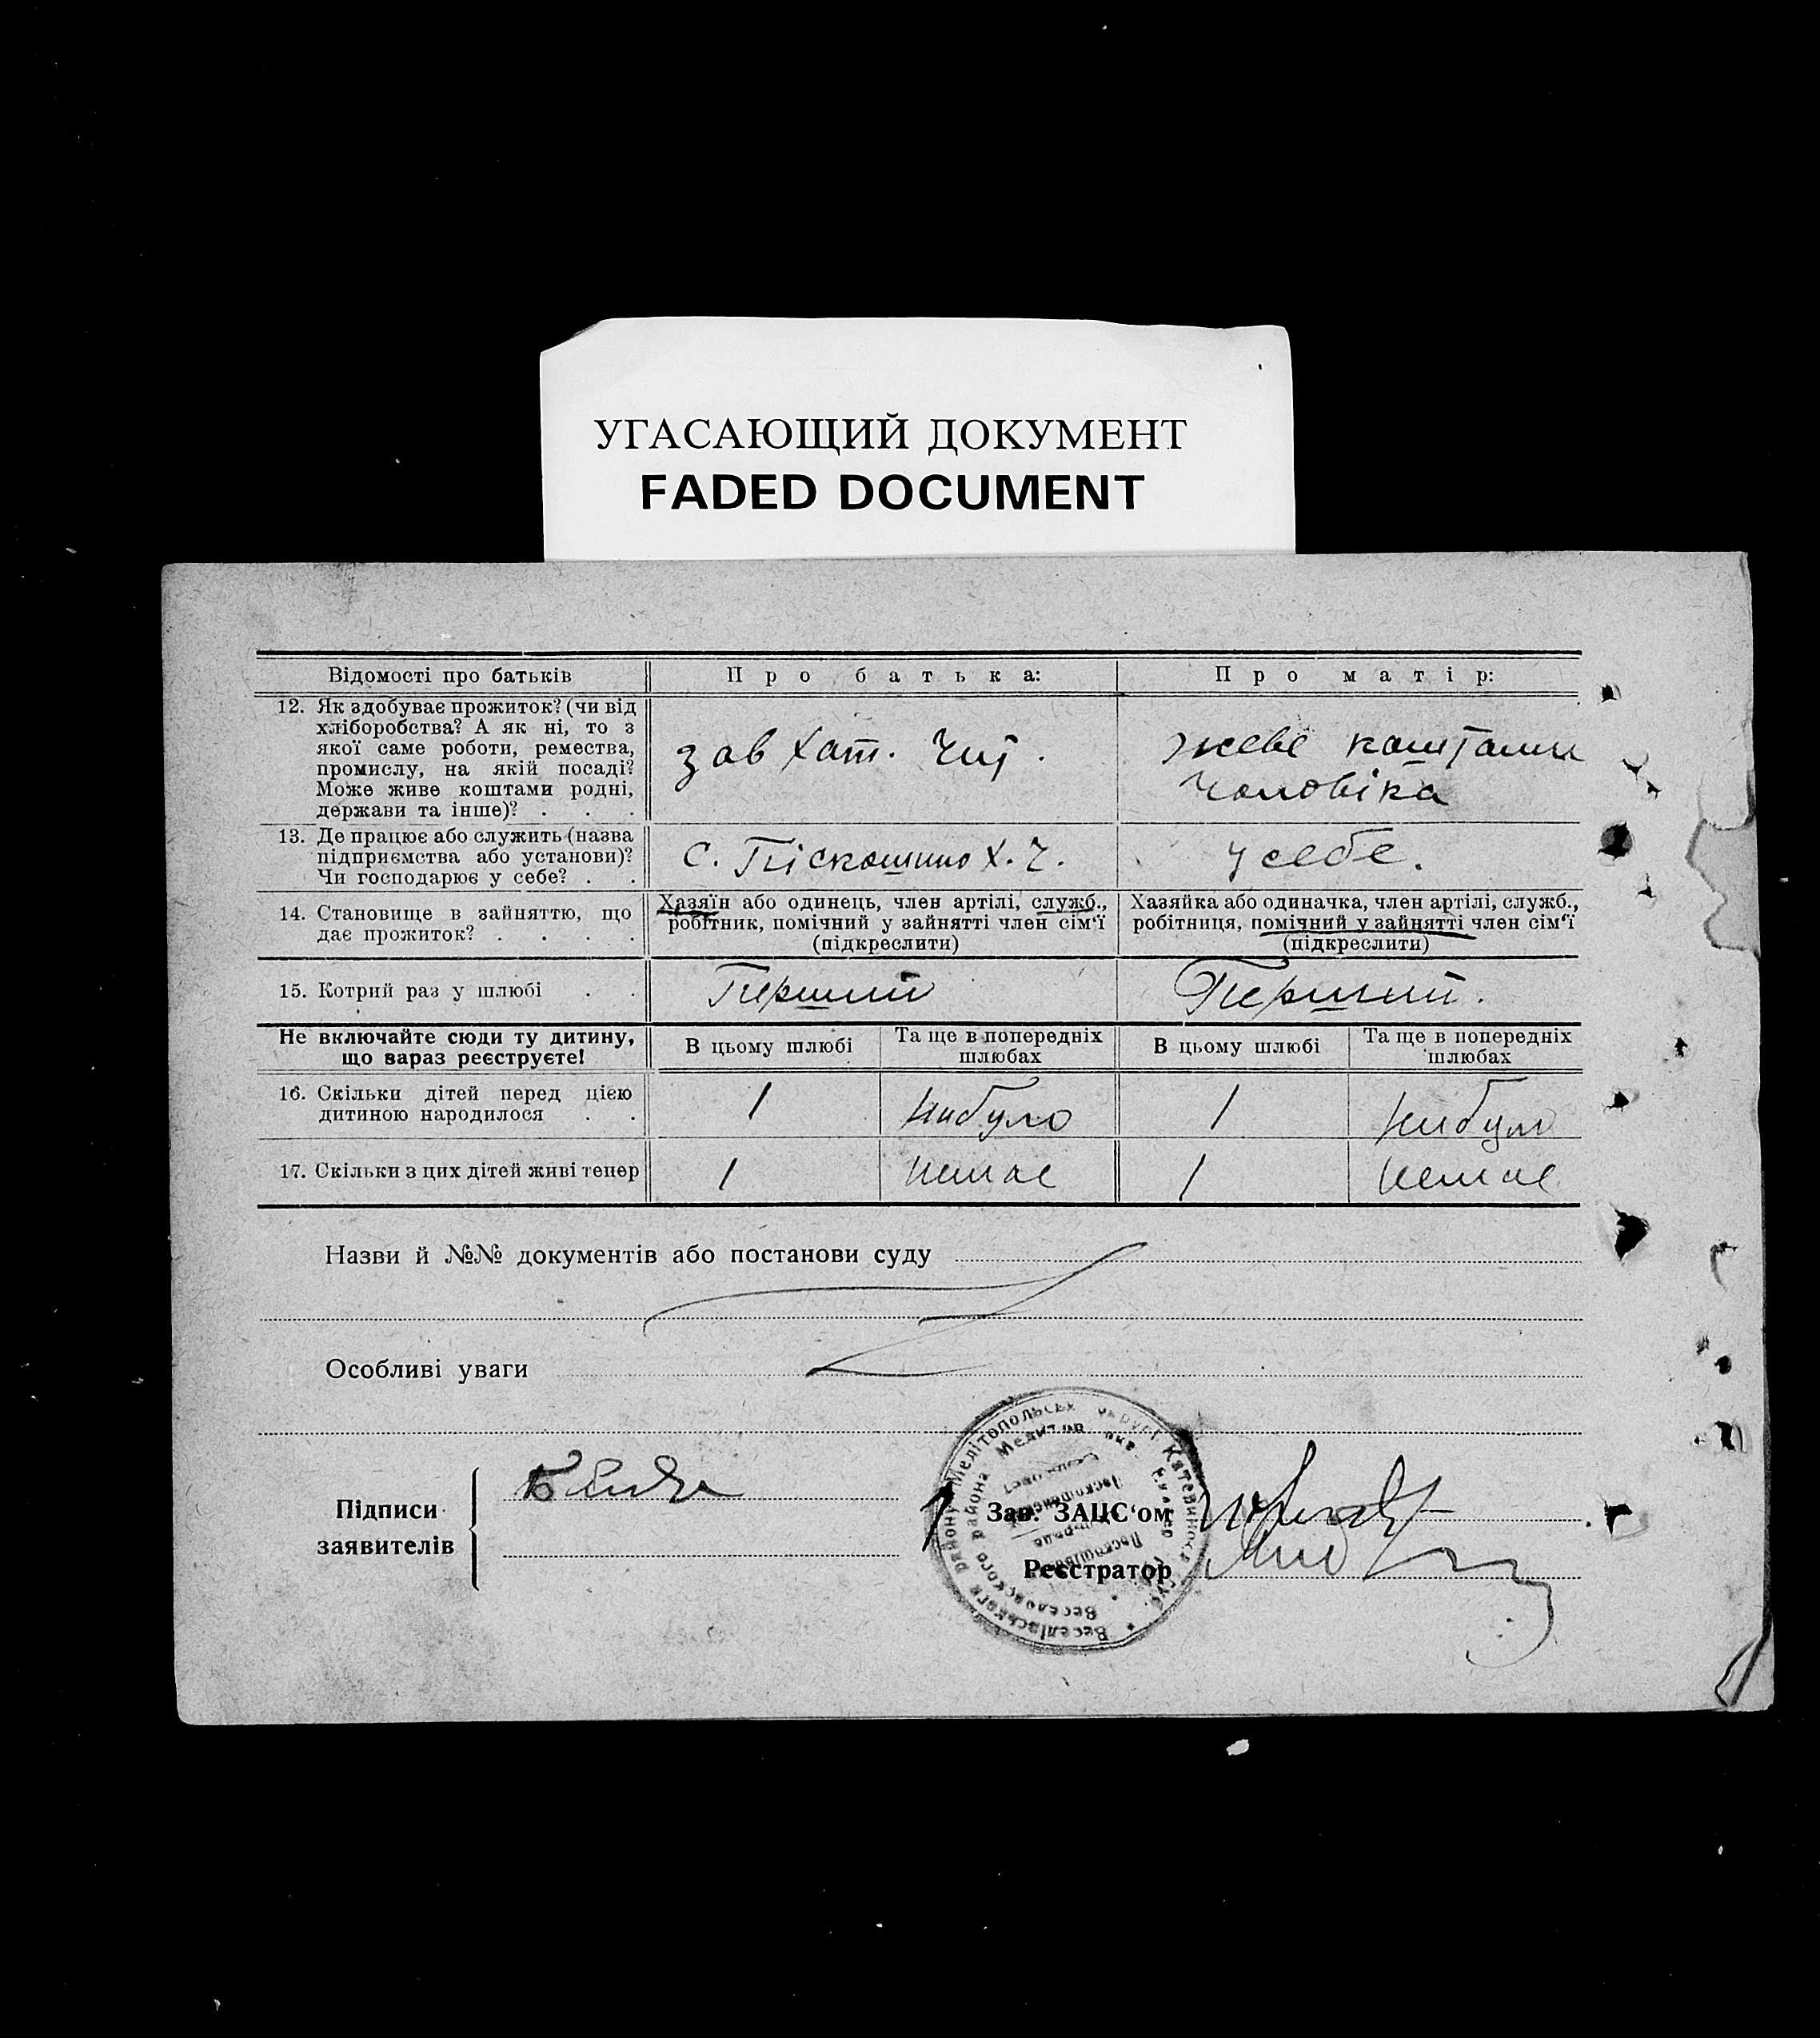 УГАСАЮЩИЙ ДОКУМЕНТ
FADED DOCUMENT
Відомості про батьків
Про батька:
Про матір:
12. Як здобуває прожиток? (чи від
хліборобства? А як ні, то з
якої саме роботи, ремества,
промислу, на якій посаді?
Може живе коштами родні,
держави та інше)? . . .
зав хат. чит.
живе коштами
чоловіка
13. Де працює або служить (назва
підприємства або установи)?
Чи господарює у себе? . .
с. Піскошино Х. Ч.
у себе.
14. Становище в зайняттю, що
дає прожиток? . . . .
Хазяїн або одинець, член артілі, служб.,
робітник, помічний у зайнятті член сім‘ї
(підкреслити)
Хазяйка або одиначка, член артілі, служб.,
робітниця, помічний у зайнятті член сім‘ї
(підкреслити)
15. Котрий раз у шлюбі . .
Перший
Перший.
Не включайте сюди ту дитину,
що зараз реєструєте!
В цьому шлюбі
Та ще в попередніх
шлюбах
В цьому шлюбі
Та ще в попередніх
шлюбах
16. Скільки дітей перед цією
дитиною народилося . .
1
нибуло
1
нибуло
17. Скільки з цих дітей живі тепер
1
немае
1
немае
Назви й №№ документів або постанови суду
Особливі уваги
Підписи
заявителів
Зав. ЗАЦС‘ом
Реєстратор
Веселівського району Мелітопольськ округі Катеринос
Веселовского района Мелитоп окр.